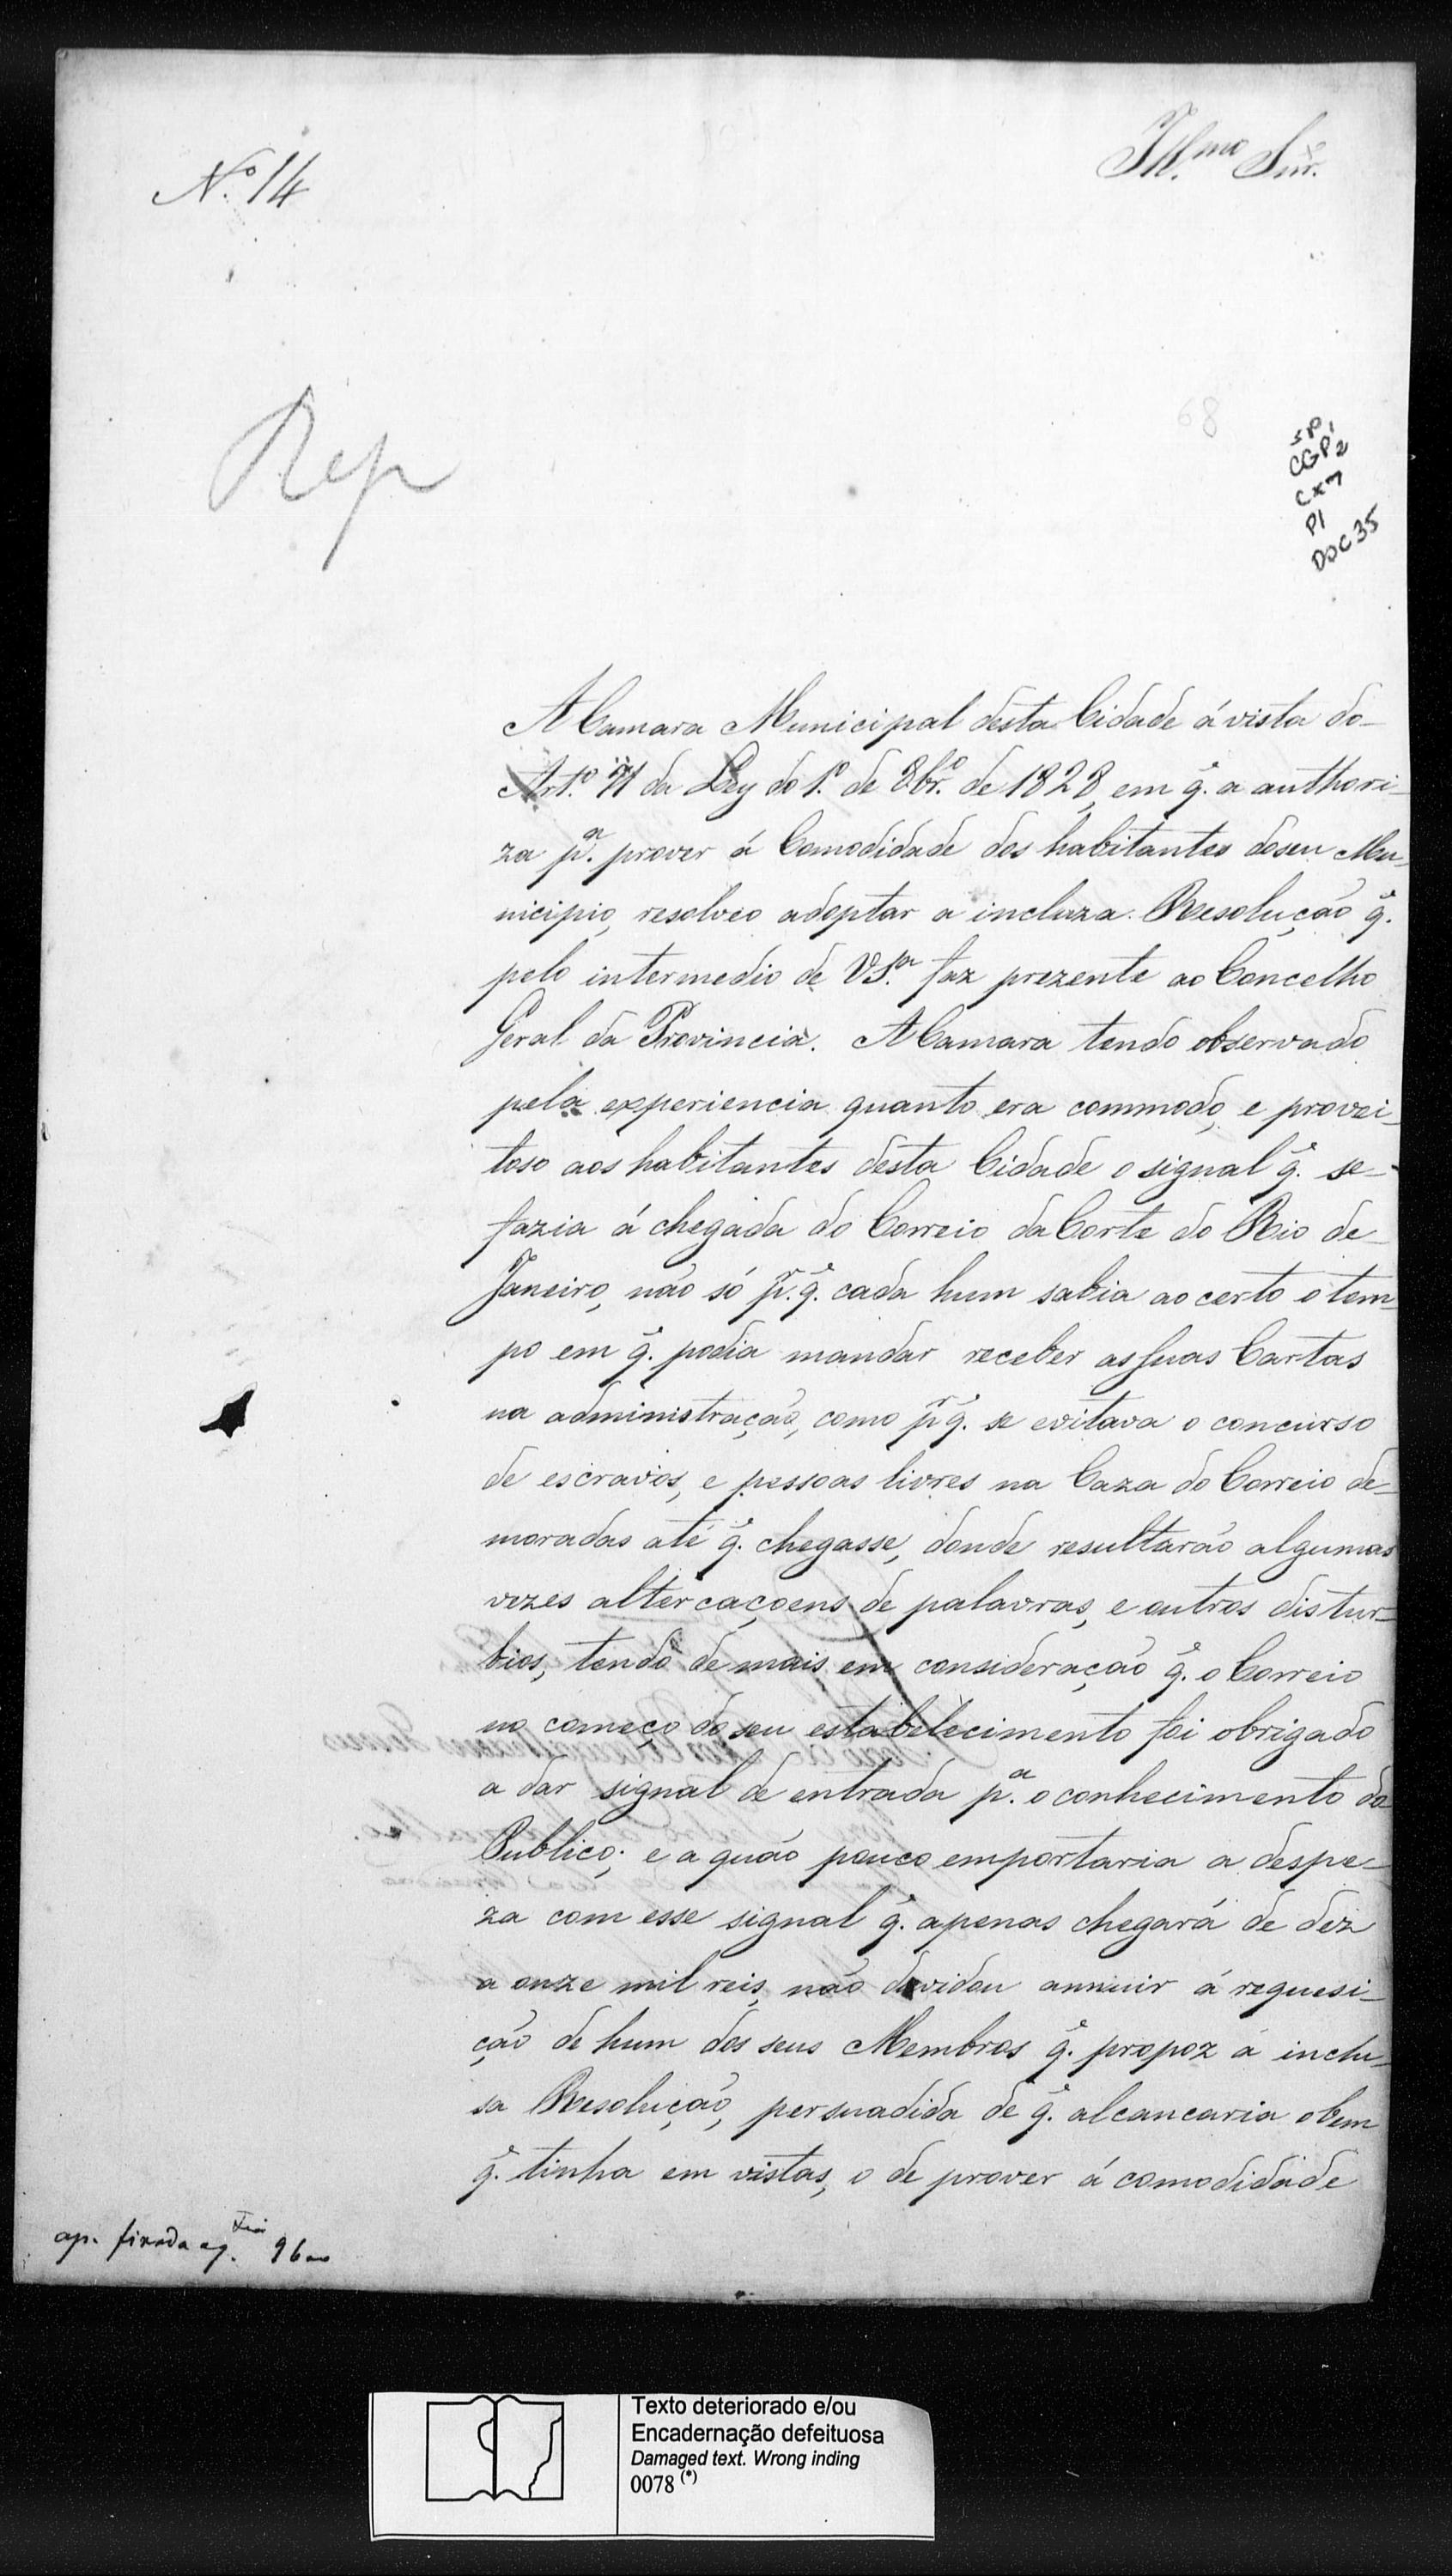 Ill.mo Snr.
N.o 14
Rep
68
SP1
CGP2
CX7
P1
DOC 35
A Camara Municipal desta Cidade á vista do
Art.o 71 da Ley do 1.o de 8br.o de 1828, em q̃. a authori-
za p.a prover á Comodidade dos habitantes doseu Mu-
nicipio, resolveo adoptar a incluza Resolução q̃.
pelo intermedio de VS.a faz prezente ao Concelho
Geral da Provincia. A Camara tendo observado
pela experiencia quanto era commodo, e provei-
toso aos habitantes desta Cidade o signal q̃. se-
fazia á chegada do Correio da Corte do Rio de-
Janeiro, não só p.r q̃. cada hum sabia ao certo o tem-
po em q̃. podia mandar receber as suas Cartas
na administração, como p.r q̃. se evitava o concurso
de escravos, e pessoas livres na Caza do Correio de-
moradas até q̃. chegasse, donde resultarão algumas
vezes altercaçoens de palavras, e outros distur-
bios, tendo de mais em consideração q̃. o Correio
no começo do seu estabelecimento foi obrigado
a dar signal de entrada p.a o conhecimento do
Publico; e a quão pouco emportaria a despe-
za com esse signal q̃. apenas chegará de dez
a onze mil reis, não duvidou annuir á requesi-
ção de hum dos seus Membros q̃. propoz a inclu-
sa Resolução, persuadida de q̃. alcancaria o bem
q̃. tinha em vistas, o de prover á comodidade
Texto deteriorado e/ou
Encadernação defeituosa
Damaged text. Wrong inding
0078 (*)